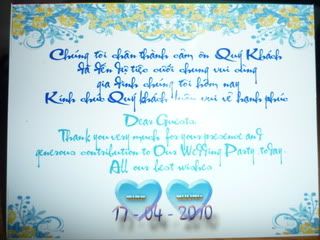 Chúng tôi chân thành cảm ơn Quý Khách
đã đến dự tiệc cưới chung vui cùng
gia đình chúng tôi hôm nay
Kính chúc Quý khách luôn vui vẻ hạnh phúc
Dear Guests:
Thank you very much for your presence and
generous contribution to Our Wedding Party today.
All our best wishes
17-04-2010